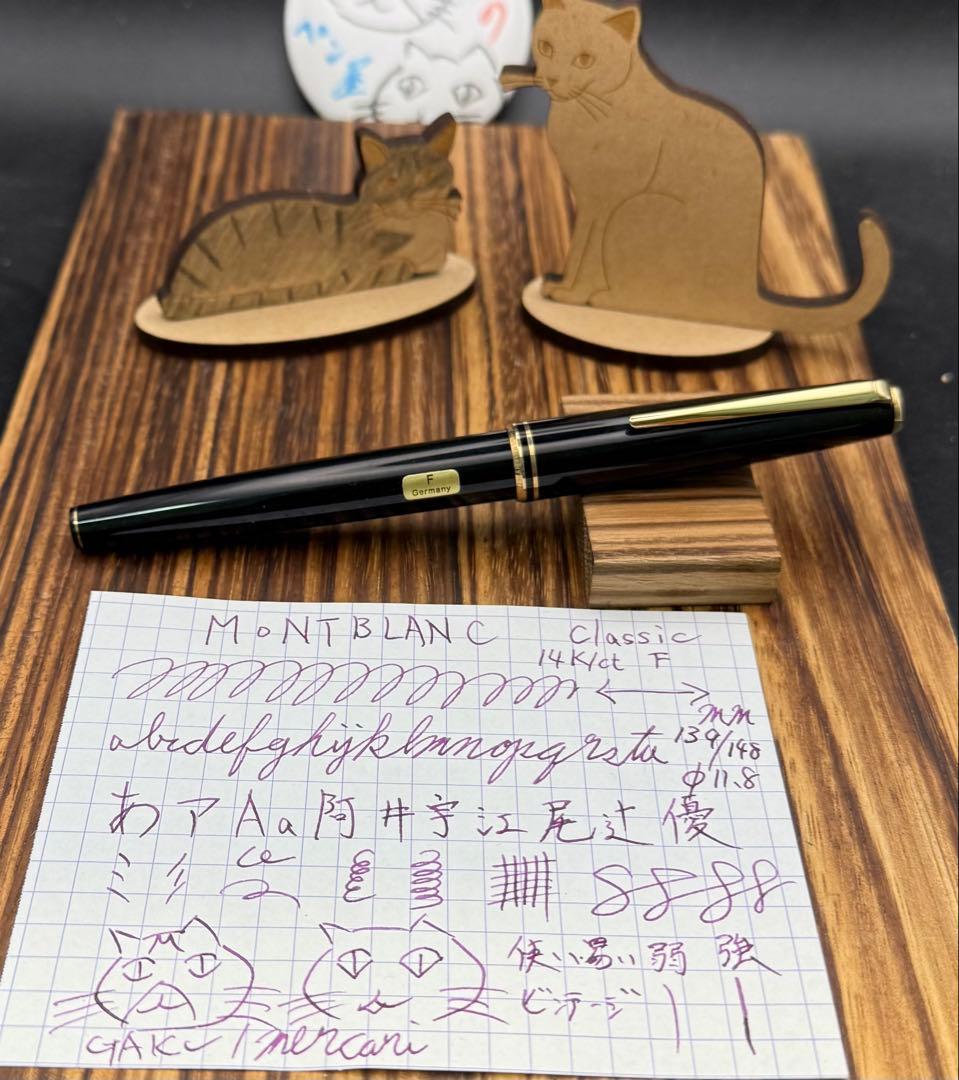 F
Germany
MoNTBLANC Classic
14K/ct F
mm
139/148
φ11.8
あ ア A a 阿 井 宇 江 尾 辻 優
使い易い 弱 強
ビンテージ
GAKU / mercari